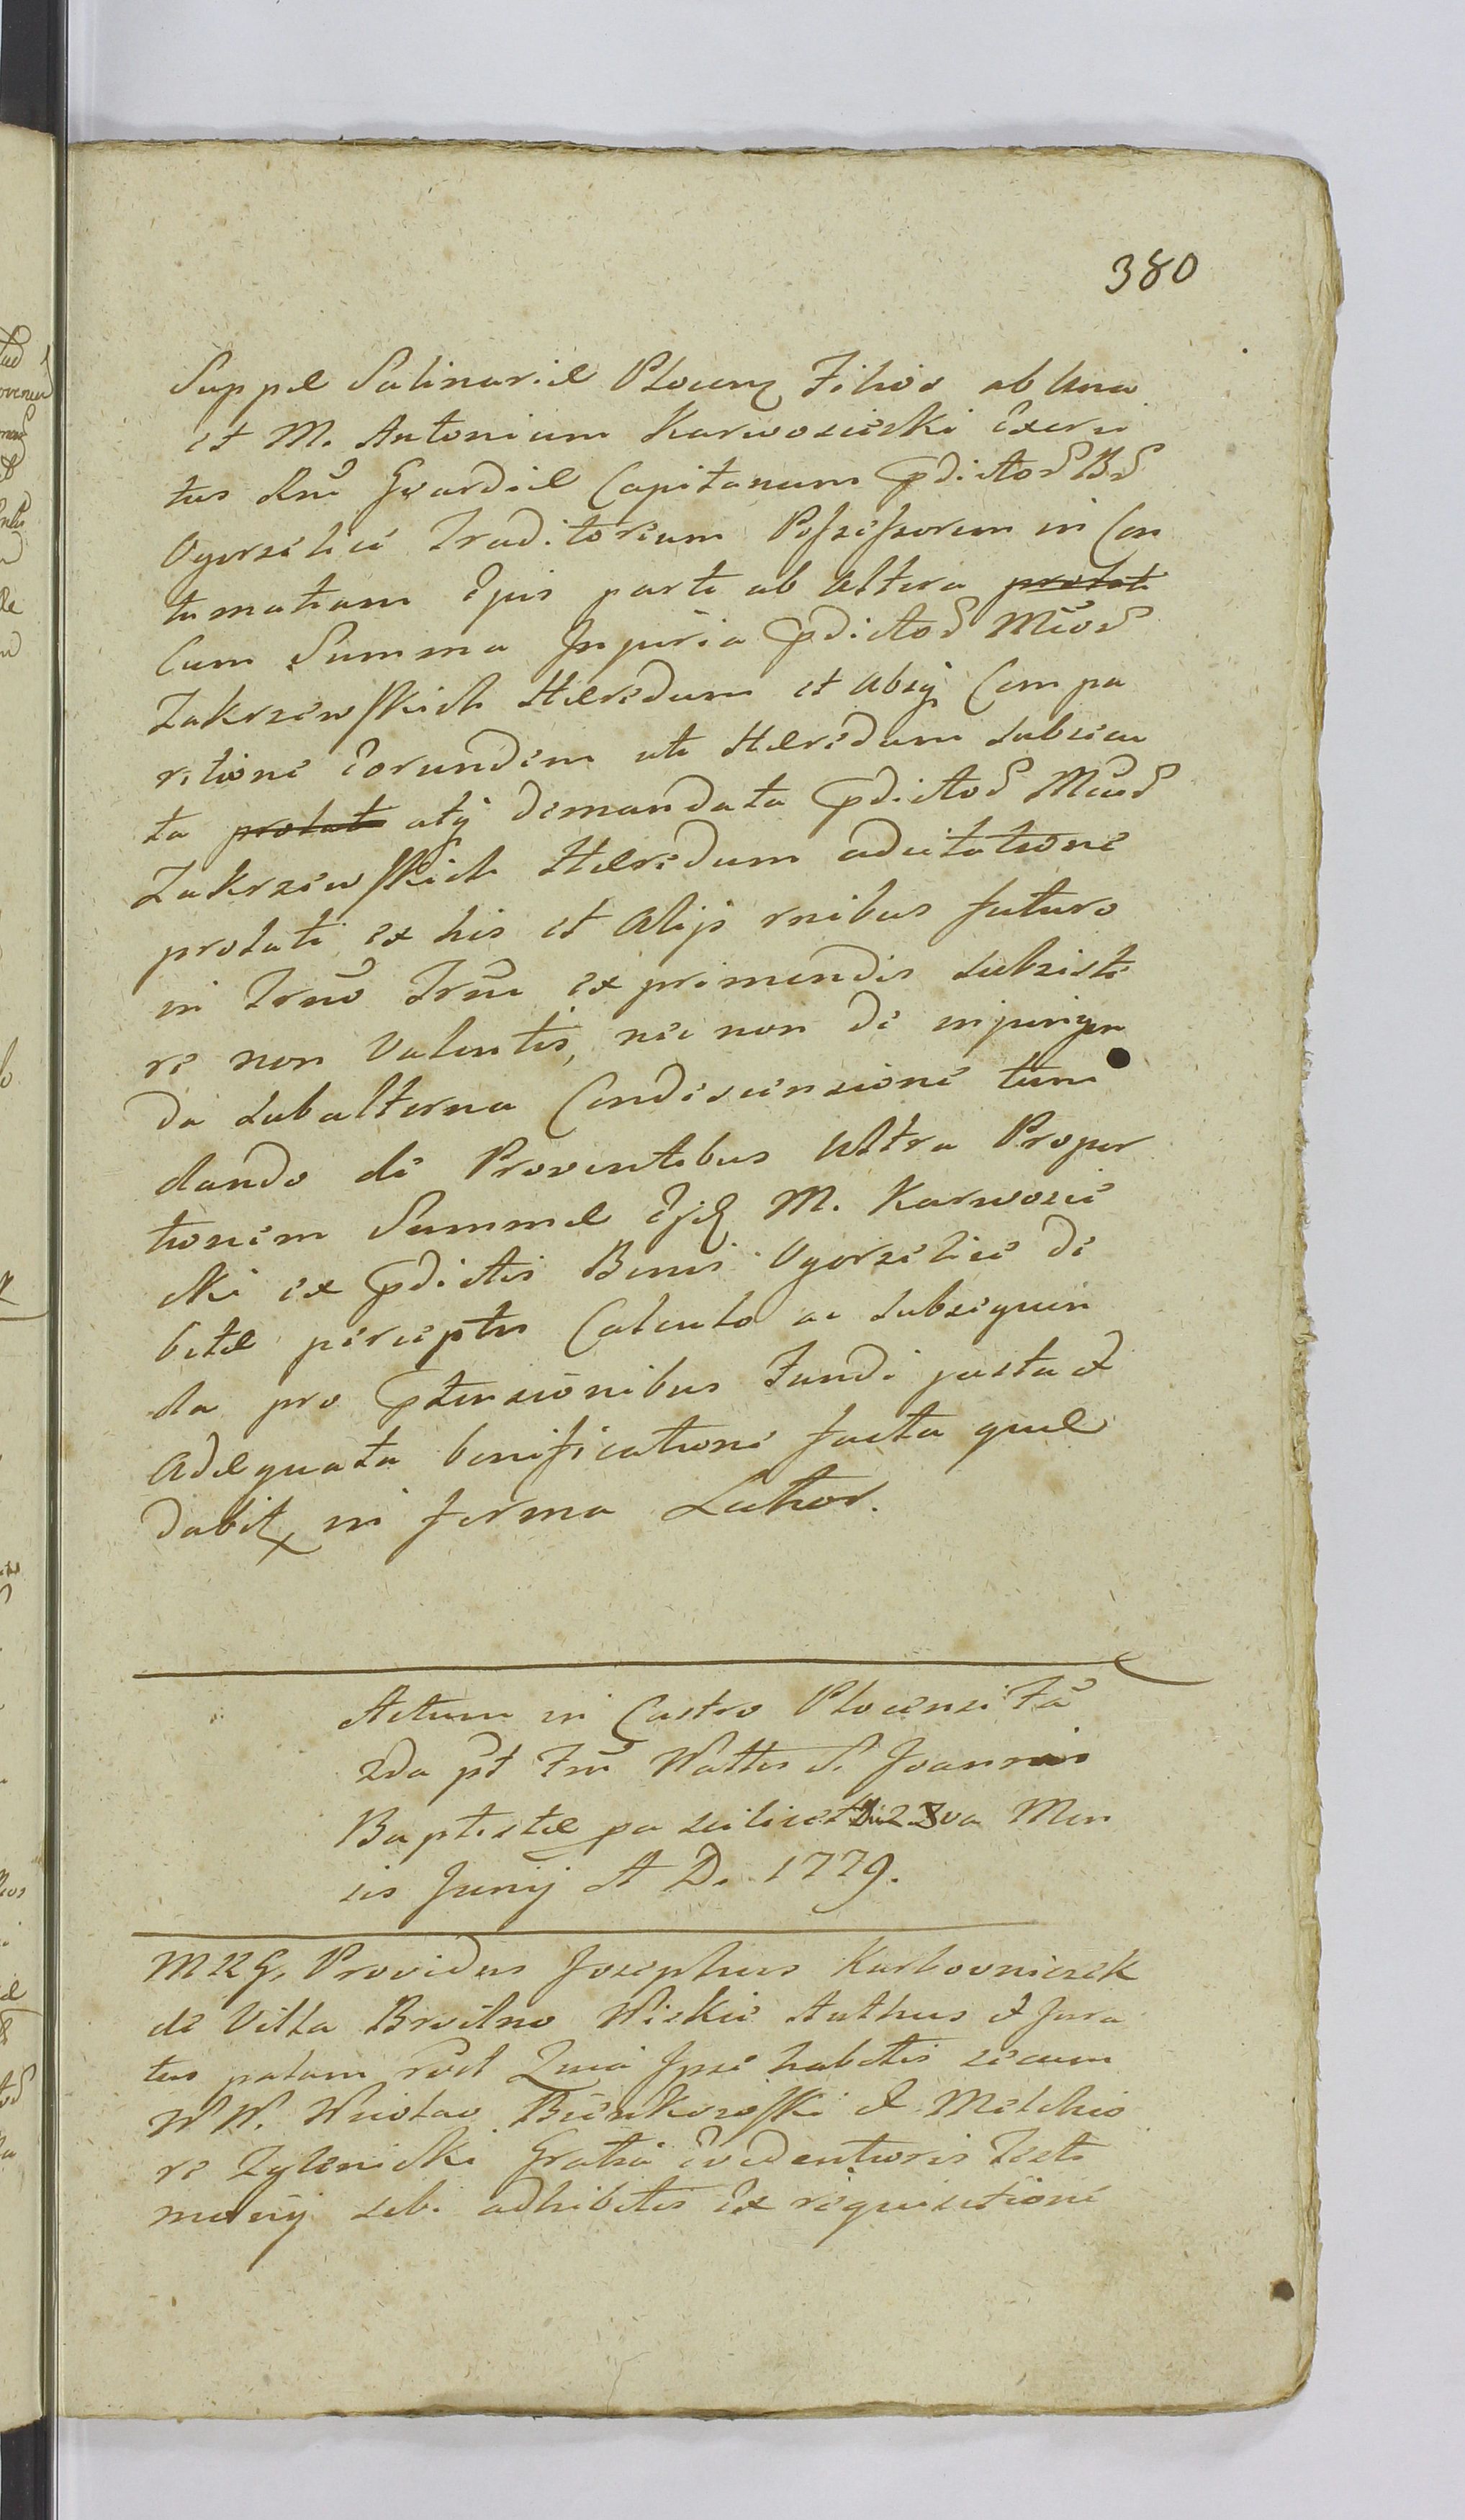 380
Suppæ Salinariæ Plocens Filios ab Una
et M. Antonium Karwosiecki Exerci
tus Rni Gwardiæ Capitaneum pdictor Br
Ogorzelice Traditorium Possessorem in Con
tumatiam Ejus parte ab Altera prolati
Cum Summa Injuria pdictor Mcor
Zakrzewskich Hæredum et absq Compa
ritione Eorundem uti Hæredum subsecu
ta prolati atq demandata pdictor Mcor
Zakrzewskich Hæredum adcitatione
prolati ex his et Alijs rnibus futuro
in Trno Trni exprimendis subsiste
re non Valentis, nec non de injungen
da subalterna Condescensione tum
dando de Proventibus Ultra Propor
tionem Summæ Ejd M. Karwosie
cki ex pdictis Bonis Ogorzelice de
bitæ perceptis Calculo ac subsequen
da pro ptensionibus Fundi justa et
Adæquata bonificatione facta quæ
dabit in forma Lathor.
Actum in Castro Plocensi Fa
2da pt Fm Nattis S. Joannis
Baptistæ pa scilicet Die 28va Men
sis Junij A D. 1779.
Providus Josephus Karbowniczek
de Villa Brwilno Wielkie Authus et Jura
tus palam rcdt Quia Ipse habitis secum
W W. Nicolao Bienkowski et Melchio
re Zylenicki Gratia Evidentioris Testi
monij sibi adhibitis Ex requisitione